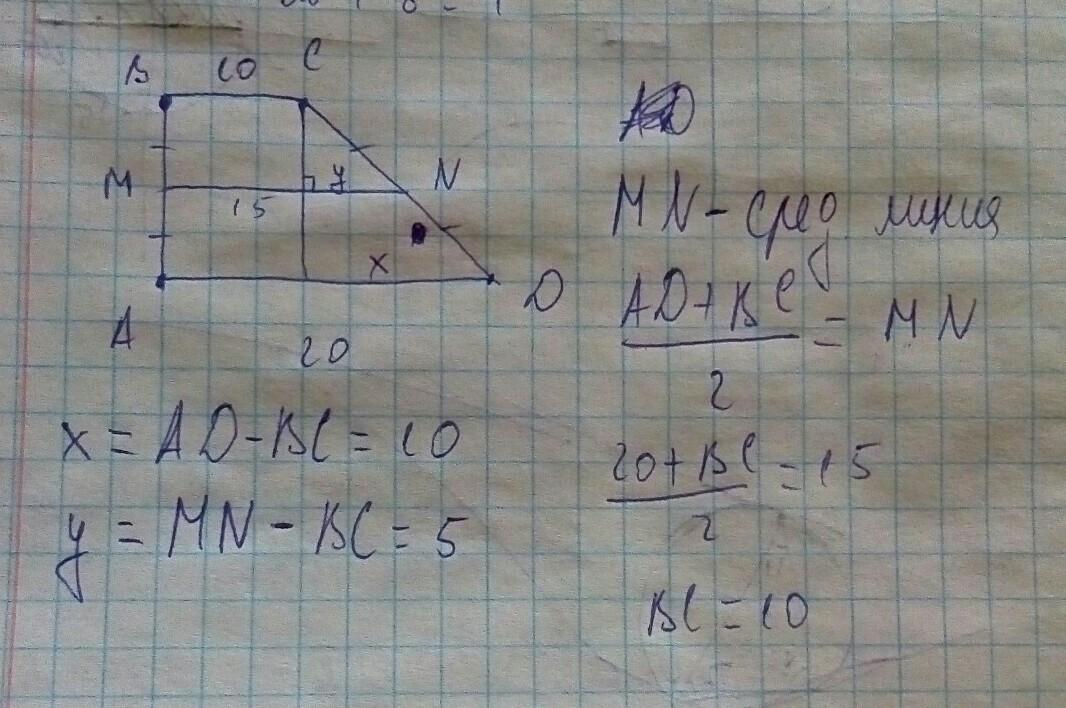 B 10 C
M 15 y N
x
A 20 D
x = AD - BC = 10
y = MN - BC = 5
MN - сред линия
AD + BC
2
= MN
20 + BC
2
= 15
BC = 10